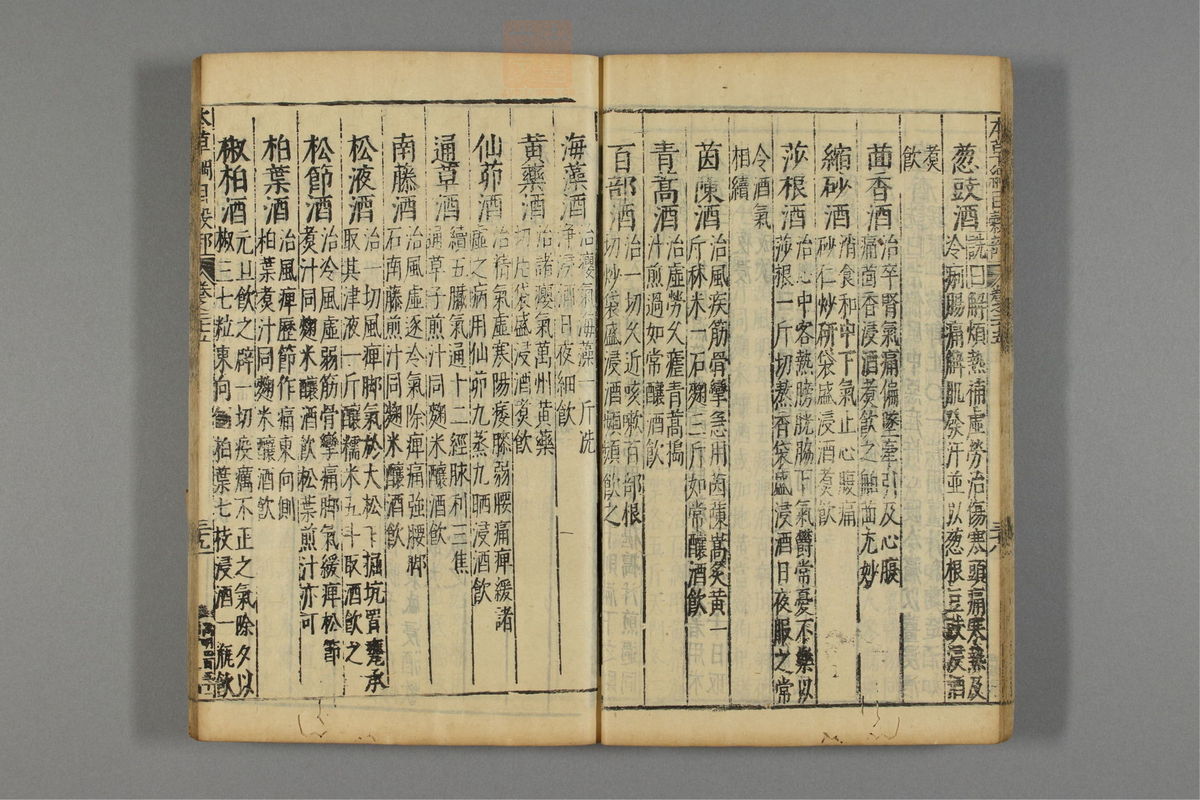 葱豉酒
詵曰解煩熱補虛勞治傷寒頭痛寒熱及
冷痢腸痛解肌發汗並以葱根豆豉浸酒
煑
飲
茴香酒
治卒腎氣痛偏墜牽引及心腹
痛茴香浸酒煑飲之舶茴尤妙
縮砂酒
消食和中下氣止心腹痛
砂仁炒研袋盛浸酒煑飲
莎根酒
治心中客熱膀胱脇下氣鬱常憂不樂以
莎根一斤切熬香袋盛浸酒日夜服之常
令酒氣
相續
茵蔯酒
治風疾筋骨攣急用茵蔯蒿炙黄一
斤秫米一石麴三斤如常釀酒飲
青蒿酒
治虛勞久瘧青蒿搗
汁煎過如常釀酒飲
百部酒
治一切久近咳嗽百部根
切炒袋盛浸酒頻頻飲之
海藻酒
治癭氣海藻一斤洗
淨浸酒日夜細飲
黄藥酒
治諸癭氣萬州黄藥
切片袋盛浸酒煑飲
仙茆酒
治精氣虛寒陽痿膝弱腰痛痺緩諸
虛之病用仙茆九蒸九晒浸酒飲
通草酒
續五臟氣通十二經脉利三焦
通草子煎汁同麴米釀酒飲
南藤酒
治風虛逐冷氣除痺痛強腰脚
石南藤煎汁同麴米釀酒飲
松液酒
治一切風痺脚氣於大松下掘坑置甕承
取其津液一斤釀糯米五斗取酒飲之
松節酒
治冷風虛弱筋骨攣痛脚氣緩痺松節
煑汁同麴米釀酒飲松葉煎汁亦可
柏葉酒
治風痺歷節作痛東向側
柏葉煑汁同麴米釀酒飲
椒柏酒
元旦飲之辟一切疾癘不正之氣除夕以
椒三七粒東向側柏葉七枝浸酒一瓶飲